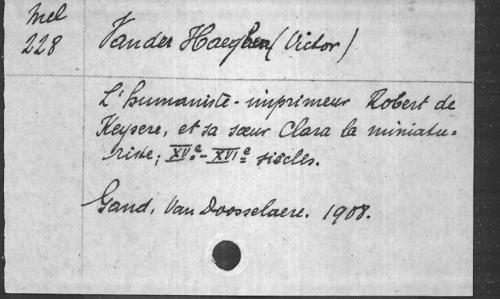 Mel
228
Van der Haeghen (Victor)
L'humaniste-imprimeur Robert de
Keysere, et sa sœur Clara la miniatu-
riste, XVe-XVIe siècles.
Gand, Van Doosselaere. 1908.